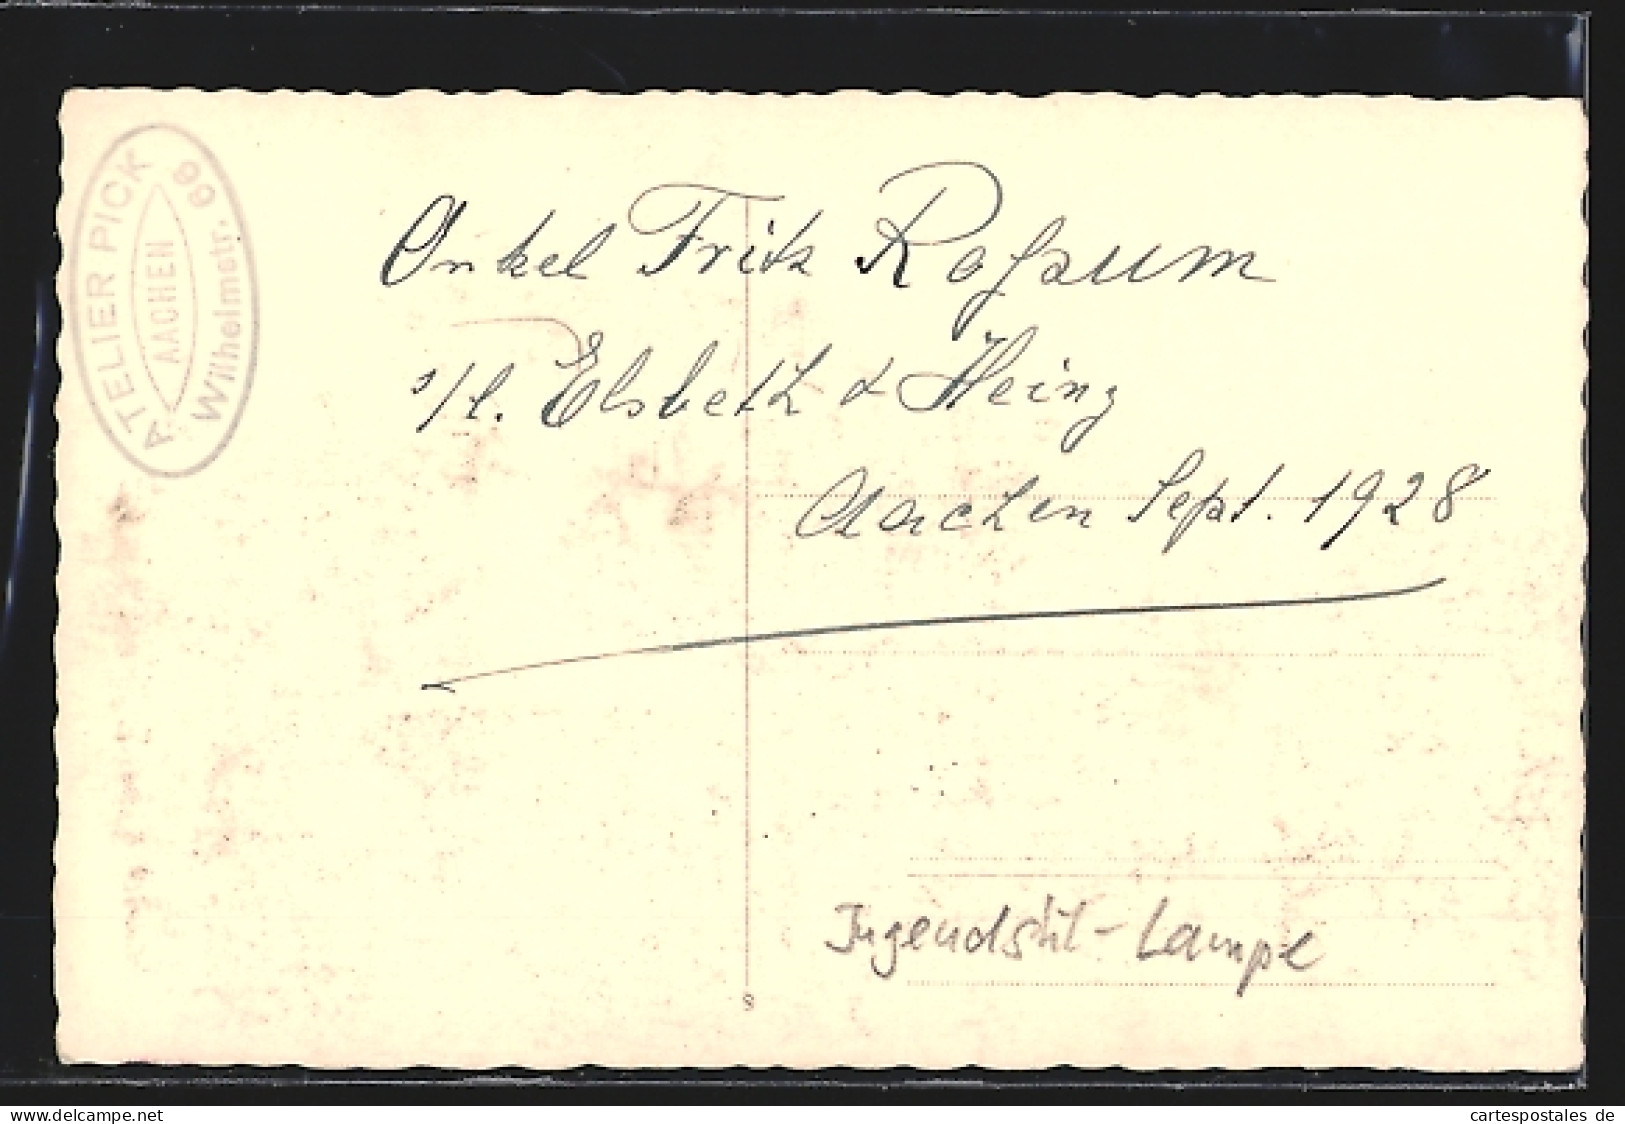 ATELIER PICK
AACHEN
Wilhelmstr. 69
Onkel Fritz
Elsbeth & Heinz
Aachen Sept. 1928
8
Jugendstil-Lampe
www.delcampe.net
cartespostales de